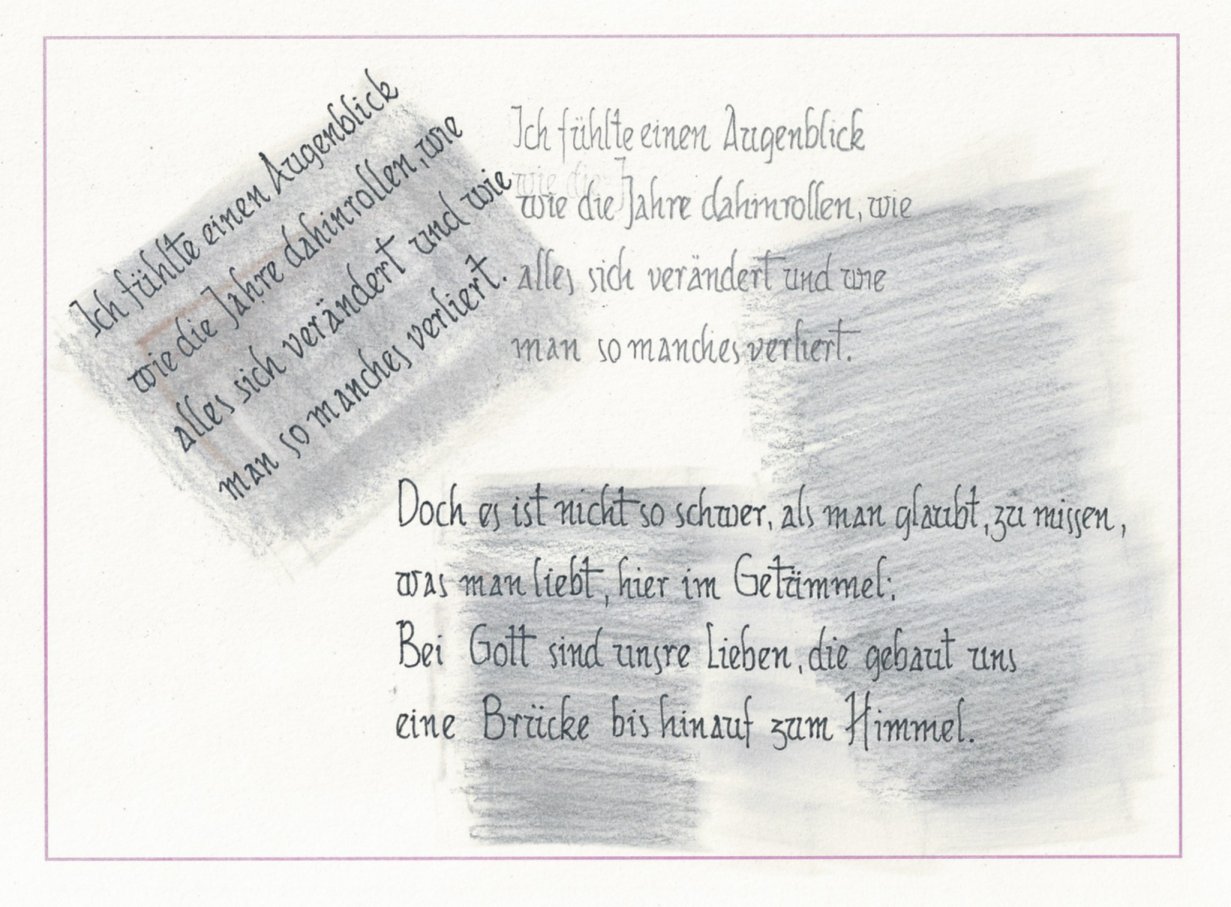 Ich fühlte einen Augenblick
wie die Jahre dahinrollen, wie
alles sich verändert und wie
man so manches verliert.
Ich fühlte einen Augenblick
wie die J
wie die Jahre dahinrollen, wie
alles sich verändert und wie
man so manches verliert.
Doch es ist nicht so schwer, als man glaubt, zu missen,
was man liebt, hier im Getümmel;
Bei Gott sind unsre Lieben, die gebaut uns
eine Brücke bis hinauf zum Himmel.